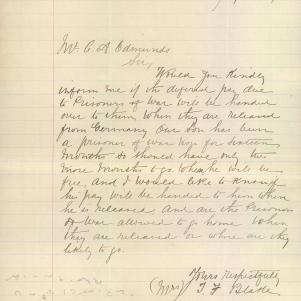 Mr. C. A Edmunds
Sir,
Would you Kindly
inform me if the deferred pay due
to Prisoners of War will be handed
over to them when they are released
from Germany Our Son has been
a prisoner of war now for sixteen
Months & should have only two
more Months to go when he will be
free, and I would like to know if
his pay will be handed to him when
he is released and are the Prisoners
of War allowed to go home when
they are released or where are they
likely to go.
Yours respectfully
(Mrs) T. F.